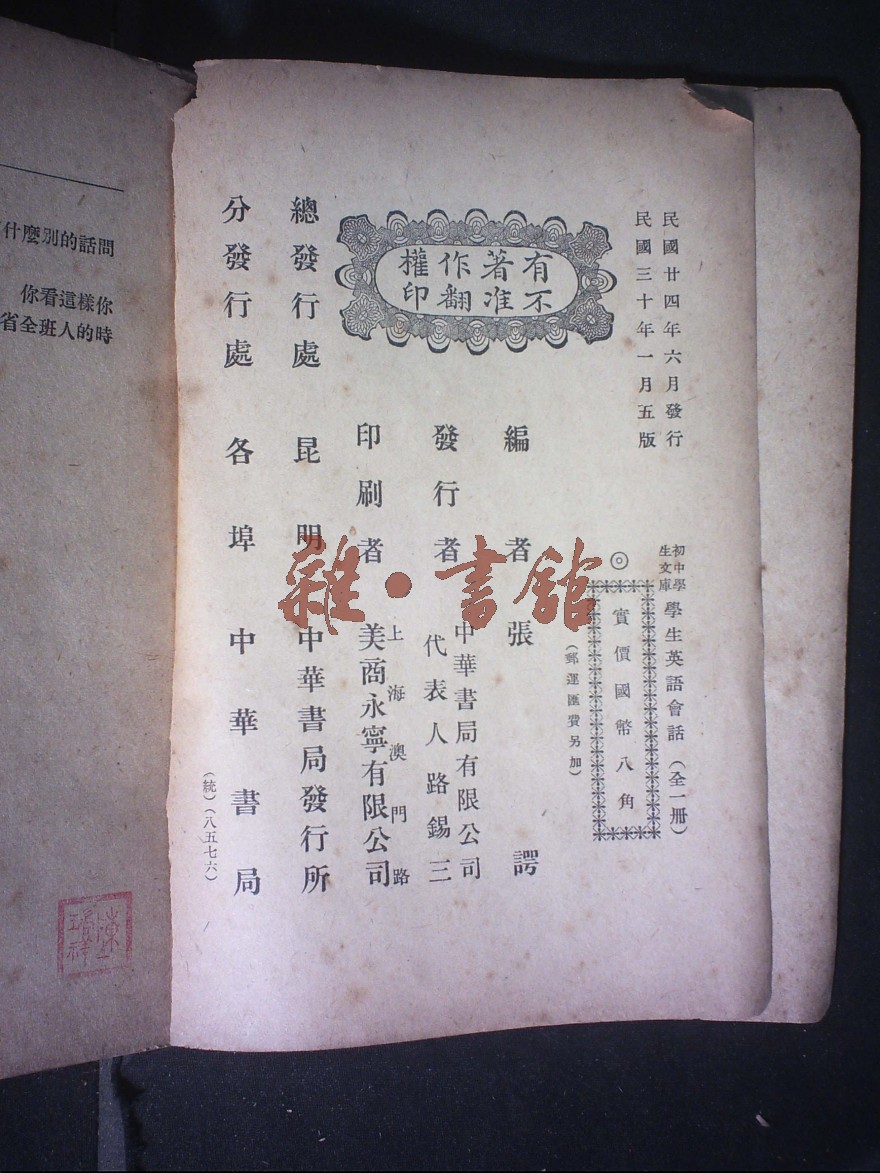 民國廿四年六月發行
民國三十年一月五版
初中學生文庫 學生英語會話（全一冊）
◎
實價國幣八角
（郵運匯費另加）
有著作權
不准翻印
編者 張諤
發行者 中華書局有限公司
代表人路錫三
印刷者 上海澳門路
美商永寧有限公司
總發行處 昆明中華書局發行所
分發行處 各埠中華書局
（統）（八五七六）
什麼別的話問
你看這樣你
省全班人的時
雜·書館